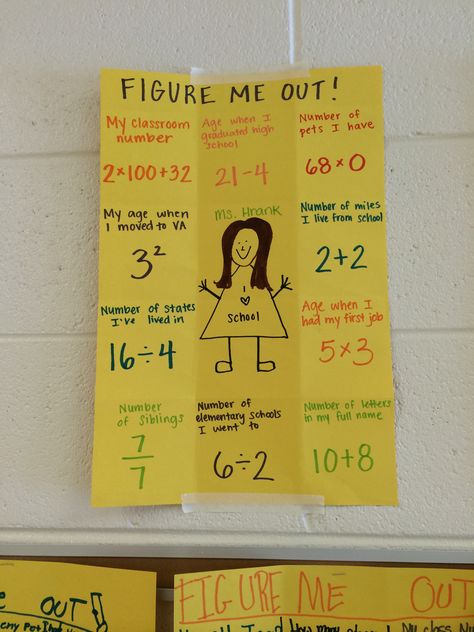 FIGURE ME OUT!
My classroom
number
2×100+32
Age when I
graduated high
school
21-4
Number of
pets I have
68×0
My age when
I moved to VA
3²
Ms. Hrank
I ♡
School
Number of miles
I live from school
2+2
Number of states
I've lived in
16÷4
Age when I
had my first job
5×3
Number
of siblings
7
7
Number of
elementary schools
I went to
6÷2
Number of letters
in my full name
10+8
OUT!
FIGURE ME OUT
How many
My class